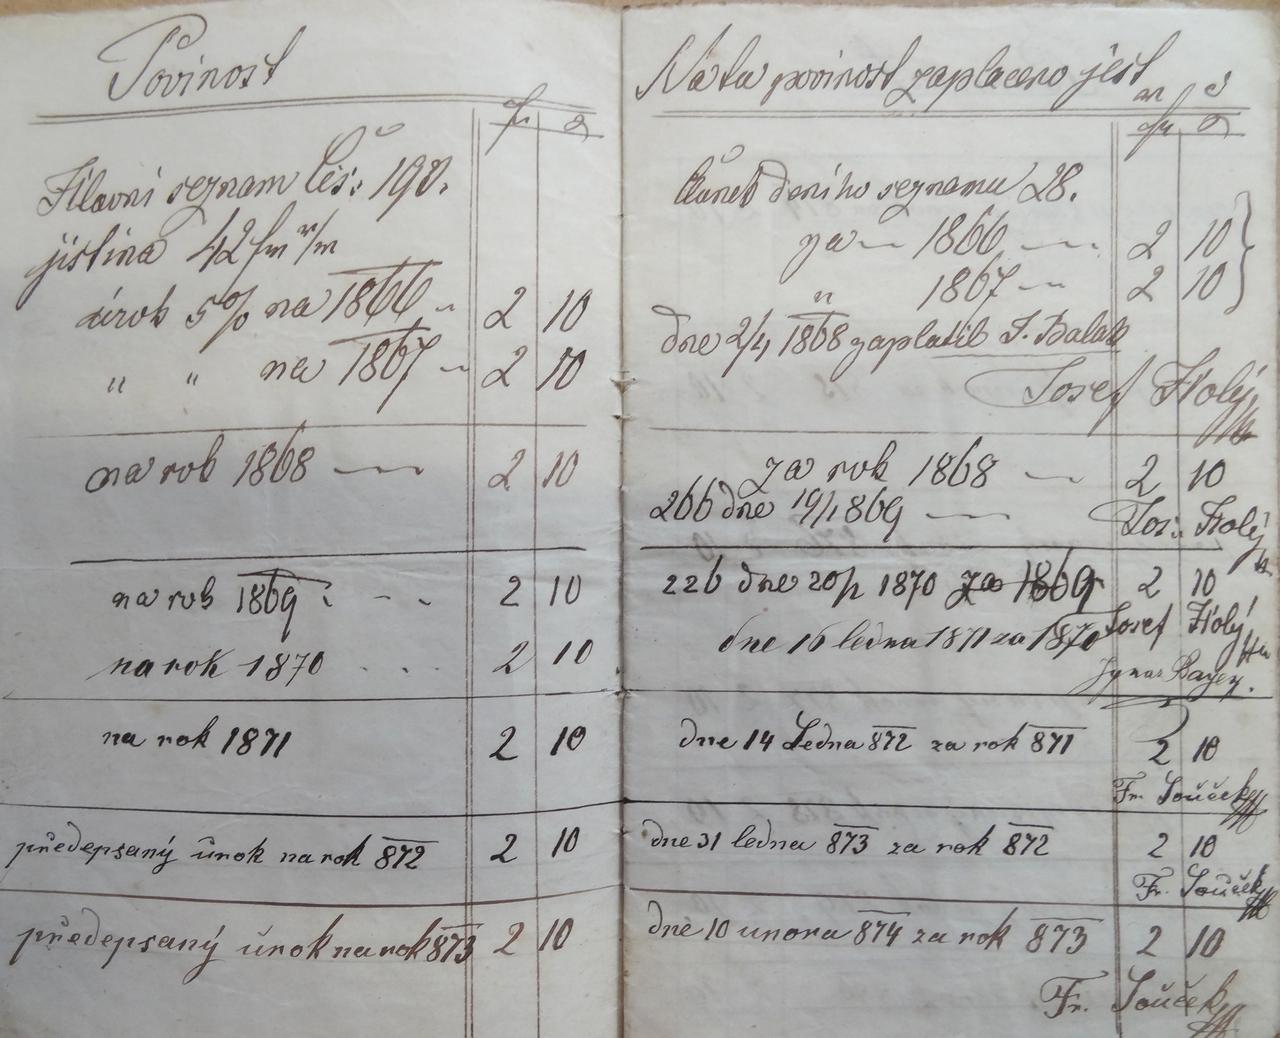 Povinost
fr
Hlavní seznam Čís: 198.
jistina 42 fr
úrok 5% na 1866 2 10
" " na 1867 2 10
na rok 1868 2 10
na rok 1869 2 10
na rok 1870 2 10
na rok 1871 2 10
předepsaný úrok na rok 872 2 10
předepsaný úrok na rok 873 2 10
Na tu povinost zaplaceno jest
fr
Článek deního seznamu 28.
za 1866 2 10
" 1867 2 10
dne 2/4 1868 zaplatil J. Balak
Josef Holý
za rok 1868 2 10
266 dne 19/1 869 Jos: Holý
226 dne 20/1 1870 za 1869 2 10
Josef Holý
dne 16 ledna 1871 za 1870
Bayer.
dne 14 Ledna 872 za rok 871 2 10
Fr. Souček
dne 31 ledna 873 za rok 872 2 10
Fr. Souček
dne 10 unora 874 za rok 873 2 10
Fr. Souček